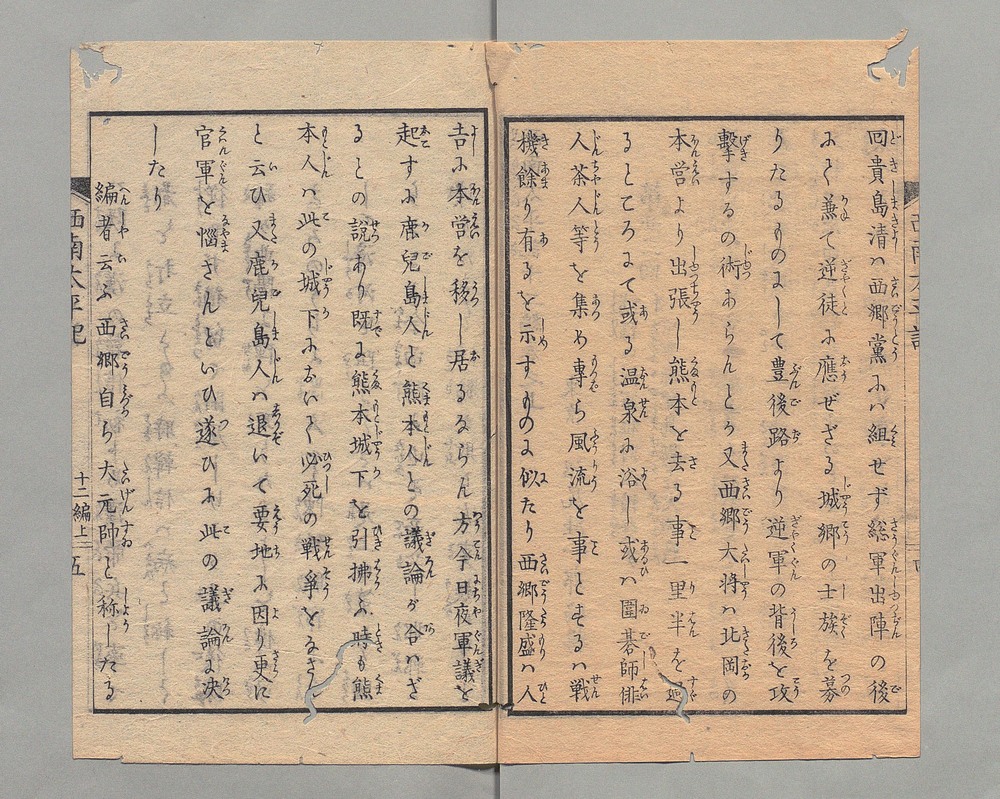 同貴島清ハ西郷黨ふハ組せず総軍出陣の後
ふて兼て逆徒ふ應ぜざる城郷の士族を募
りたるものにして豊後路より逆軍の背後を攻
撃するの術あらんとか又西郷大将ハ北岡の
本営より出張し熊本を去る事一里半を過
るところにて或る温泉ふ浴し或ハ圍碁師俳
人茶人等を集め專ら風流を事とするハ戦
機餘り有るを示すものに似たり西郷隆盛ハ人
吉ふ本営を移し居るならん方今日夜軍議を
起すふ鹿兒島人と熊本人との議論が合ハざ
るとの説あり既に熊本城下を引拂ふ時も熊
本人ハ此の城下ふおいて必死の戦爭をなさん
と云ひ又鹿兒島人ハ退いて要地ふ因り更に
官軍を惱さんといひ遂ひふ此の議論に决
したり
編者云ふ西郷自ら大元帥と称したる
西南太平記
十二編上
五